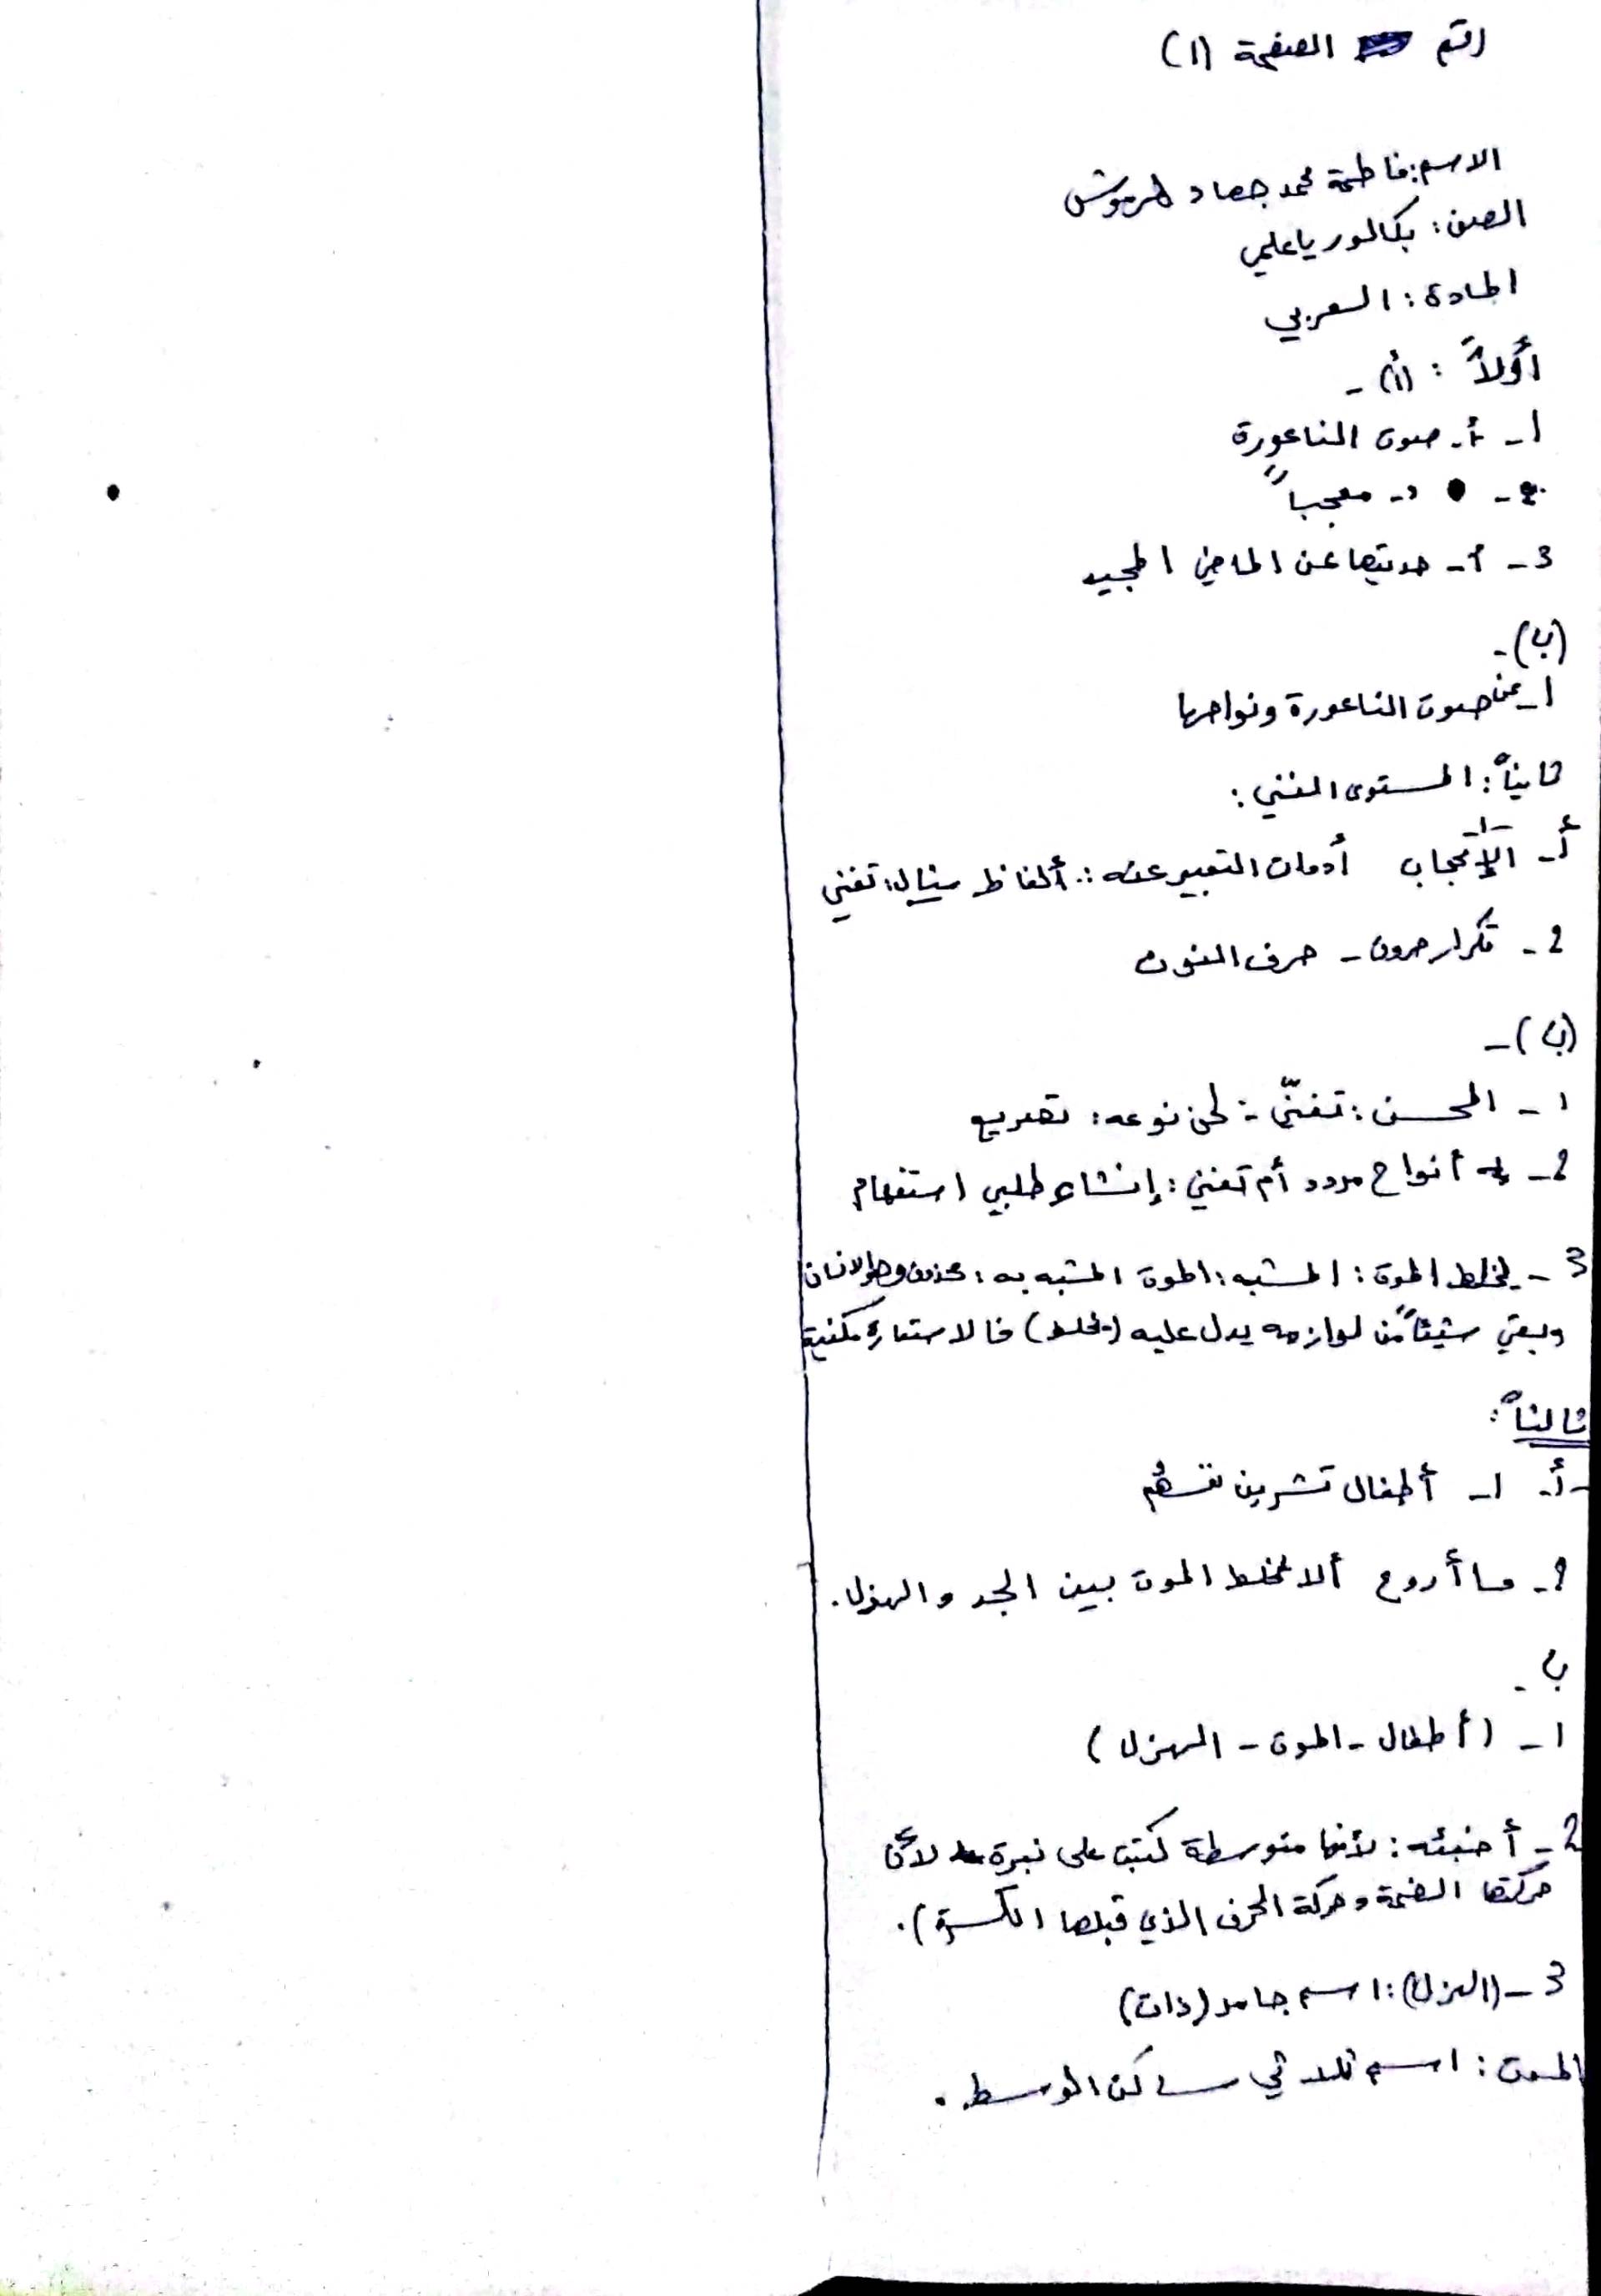 رقم الصفحة (1)
الاسم: فاطمة محمد جهاد هرموش
الصف: بكالوريا علمي
المادة: العربي
أولاً: (أ) -
1- أ- صوت الناعورة
2- د- معجباً
3- أ- حديثها عن الماضي المجيد
(ب)-
1- عن صوت الناعورة ونواحها
ثانياً: المستوى الفني:
أ- 1- الإعجاب أدوات التعبير عنه: ألفاظ مثال: تغني
2- تكرار حروف - حرف النون
(ب)-
1- المحسن: تغنّي - لحن نوعه: تصريع
2- أنواح مردد أم تغني: إنشاء طلبي استفهام
3- يخلط الموت: المشبه: الموت المشبه به: محذوف وهو الانسان
وبقي شيئاً من لوازمه يدل عليه (يخلط) فالاستعارة مكنية
ثالثاً:
أ- 1- أطفال تشرين نفسهُم
2- ما أروع ألا يخلط الموت بين الجد والهزل.
ب-
1- (أطفال - الموت - الهزل)
2- أ: لأنها متوسطة كتبت على نبرة لأن
حركتها الضمة وحركة الحرف الذي قبلها الكسرة).
3- (الهزل): اسم جامد (ذات)
الموت: اسم ثلاثي ساكن الوسط.